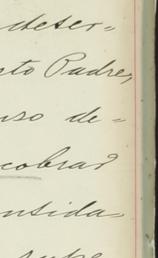 deter-
to Padre,
so de-
cobrar
ntida